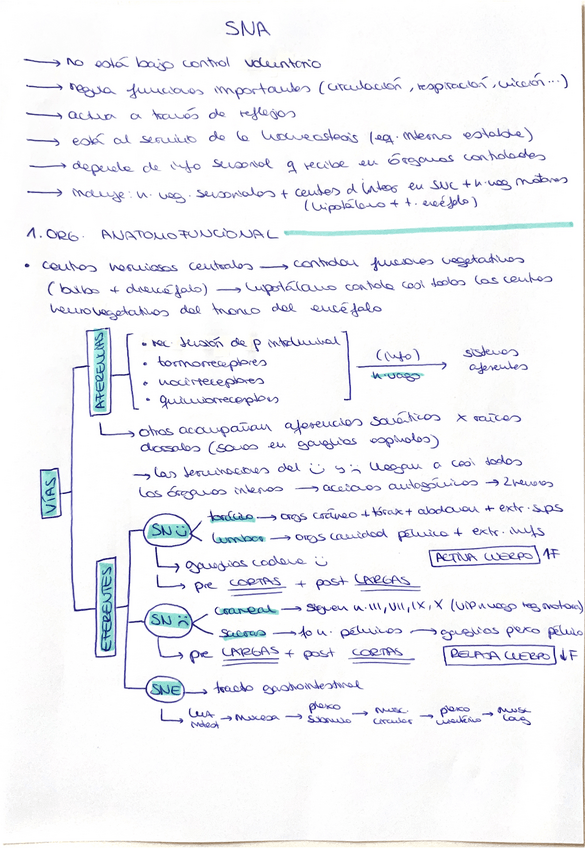 SNA
→ no está bajo control voluntario
→ regula funciones importantes (circulación, respiración, micción...)
→ actúa a través de reflejos
→ está al servicio de la homeostasis (eq. interno estable)
→ depende de info sensorial q recibe en órganos controlados
→ incluye: n. veg. sensoriales + centros d integr en SNC + n. veg motores
(hipotálamo + t. encéfalo)
1. ORG. ANATOMOFUNCIONAL
• centros nerviosos centrales → controlan funciones vegetativas
(bulbo + diencéfalo) → hipotálamo controla casi todos los centros
neurovegetativos del tronco del encéfalo
VÍAS
AFERENCIAS
• rec. tensión de p intraluminal
• termorreceptores
• nocirreceptores
• quimiorreceptores
(info)
n. vago
sistemas
aferentes
→ otras acompañan aferencias somáticas x raíces
dorsales (somas en ganglios espinales)
→ las terminaciones del :) y :( llegan a casi todos
los órganos internos → acciones antagónicas → 2 neuronas
EFERENTES
SN :)
torácico → orgs cráneo + tórax + abdomen + extr. sups
lumbar → orgs cavidad pélvica + extr. infs
→ ganglios cadena :)
ACTIVA CUERPO ↑F
→ pre CORTAS + post LARGAS
SN :(
craneal → siguen n. III, VII, IX, X (VIP n vago reg. motora)
sacras → fo n. pélvicos → ganglios plexo pélvico
→ pre LARGAS + post CORTAS
RELAJA CUERPO ↓F
SNE → tracto gastrointestinal
→ luz intest → mucosa → plexo submuc → musc. circular → plexo mientérico → musc long